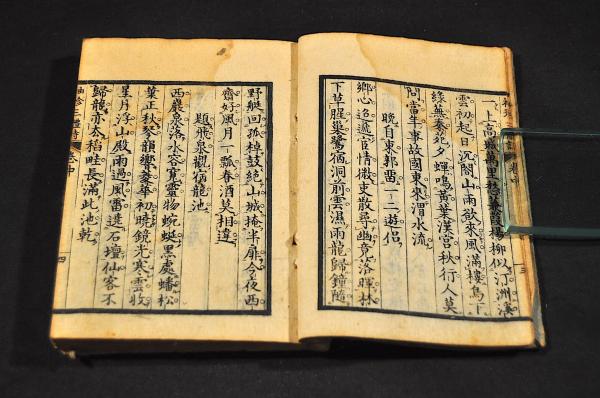 一上高城萬里愁蒹葭楊柳似汀洲溪
雲初起日沉閣山雨欲來風滿樓鳥下
綠蕪秦苑夕蟬鳴黃葉漢宮秋行人莫
問當年事故國東來渭水流
晚自東郭留一二遊侶
鄉心迢遞宦情微吏散尋幽竟落暉林
下草腥巢鷺宿洞前雲濕雨龍歸鐘隨
野艇回孤棹鼓絕山城掩半扉今夜西
齋好風月一瓢春酒莫相違
題飛泉觀宿龍池
西巖泉落水容寬靈物蜿蜒黑處蟠松
葉正秋琴韻響菱華初曉鏡光寒雲收
星月浮山殿雨過風雷遶石壇仙客不
歸龍亦去稻畦長滿此池乾
袖珍三體詩 卷中 四